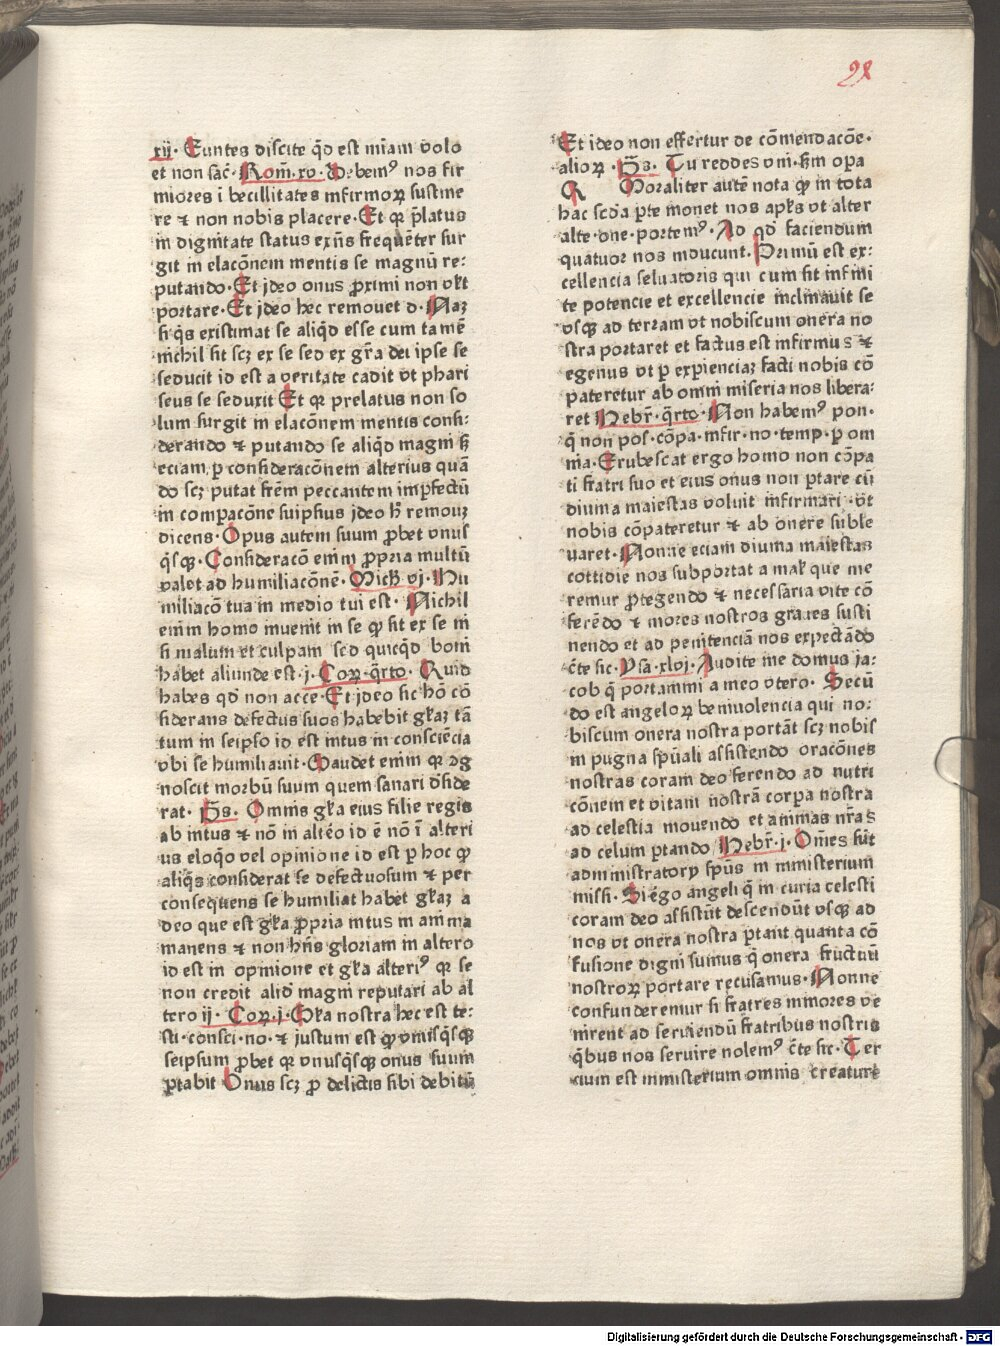 28
xij. Euntes discite qd̄ est miām volo
et non sac̄. Rom̄.xv. Debemꝰ nos fir
miores ī becillitates infirmoꝝ sustine
re ⁊ non nobis placere. Et qꝛ p̄latus
in dignitate status exn̄s frequēter sur
git in elacōnem mentis se magnū re:
putando. Et jdeo onus p̄ximi non vƚt
portare. Et jdeo hec remouet d. Naꝫ
si q̄s existimat se aliqd̄ esse cum tamē
nichil sit scꝫ ex se sed ex gr̄a dei ipse se
seducit id est a veritate cadit vt phari
seus se seduxit Et qꝛ prelatus non so
lum surgit in elacōnem mentis consi:
derando ⁊ putando se aliqd̄ magni sꝫ
eciam ꝑ consideracōnem alterius quā
do scꝫ putat frēm peccantem imꝑfectū
in comꝑacōne suipsius jdeo h̄ remouꝫ
dicens. Opus autem suum ꝓbet vnus
q̄sqꝫ. Consideracō enim ꝓpria multū
valet ad humiliacōnē. Mich̄ vj. Hu
miliacō tua in medio tui est. Nichil
enim homo inuenit in se qꝙ sit ex se ni
si malum et culpam sed quicqd̄ boni
habet aliunde est. j. Coꝝ. q̄rto. Quid
habes qd̄ non acce. Et jdeo sic hō cō
siderans defectus suos habebit gƚaꝫ tā
tum in seipso id est intus in consciēcia
vbi se humiliauit. Gaudet enim qꝛ ↄg
noscit morbū suum quem sanari d̄side
rat. Ps̄. Omnis gƚa eius filie regis
ab intus ⁊ nō in altēo id ē nō ī alteri
us eloq̄o vel opinione id est ꝑ hoc ꝙ
aliq̄s considerat se defectuosum ⁊ per
consequens se humiliat habet gƚaꝫ a
deo que est gƚa ꝓpria intus in anima
manens ⁊ non hn̄s gloriam in altero
id est in opinione et gƚa alteriꝰ qꝛ se
non credit alid̄ magni reputari ab al
tero ij. Coꝝ. j. Gƚa nostra hec est te:
sti. consci. no. ⁊ justum est ꝙ vnusq̄sqꝫ
seipsum ꝓbet qꝛ vnusq̄sqꝫ onus suum
ꝑtabit Onus scꝫ ꝓ delictis sibi debitū
Et ideo non effertur de cōmendacōe.
alioꝝ. Ps̄. Tu reddes vni. sm̄ opa
Moraliter autē nota ꝙ in tota
hac scd̄a ꝑte monet nos apƚs vt alter
alte. one. portemꝰ. Ad qd̄ faciendum
quatuor nos inducunt. Primū est ex:
cellencia seluatoris qui cum sit infini
te potencie et excellencie inclinauit se
vsqꝫ ad terram vt nobiscum onera no
stra portaret et factus est infirmus ⁊
egenus vt ꝑ exꝑienciaꝫ facti nobis cō
pateretur ab omni miseria nos libera:
ret Hebr̄. q̄rto. Non habemꝰ pon.
q̄ non pos. cōpa. infir. no. temp. ꝑ om
nia. Erubescat ergo homo non cōpa
ti fratri suo et eius onus non ꝑtare cū
diuina maiestas voluit infirmari. vt
nobis cōpateretur ⁊ ab onere suble
uaret. Nonne eciam diuina maiestas
cottidie nos subportat a maƚ que me
remur ꝓtegendo ⁊ necessaria vite cō
ferēdo ⁊ mores nostros graues susti
nendo et ad penitenciā nos expectādo
c̄te sic. Ysā. xlvj. Audite me domus ja:
cob q̄ portamini a meo vtero. Secū
do est angeloꝝ beniuolencia qui no:
biscum onera nostra portāt scꝫ nobis
in pugna spūali assistendo oracōnes
nostras coram deo ferendo ad nutri
cōnem et vitam nostrā corꝑa nostra
ad celestia mouendo et animas nr̄as
ad celum ꝑtando Hebr̄. j. Om̄es sūt
administratorij spūs in ministerium
missi. Si ēgo angeli q̄ in curia celesti
coram deo assistūt descendūt vsqꝫ ad
nos vt onera nostra ꝑtant quanta cō
fusione digni sumus q̄ onera fructuū
nostroꝝ portare recusamus. Nonne
confunderemur si fratres minores ve
nirent ad seruiendū fratribus nostris
q̄bus nos seruire nolemꝰ c̄te sic. Ter
cium est ministerium omnis creature
Digitalisierung gefördert durch die Deutsche Forschungsgemeinschaft - DFG